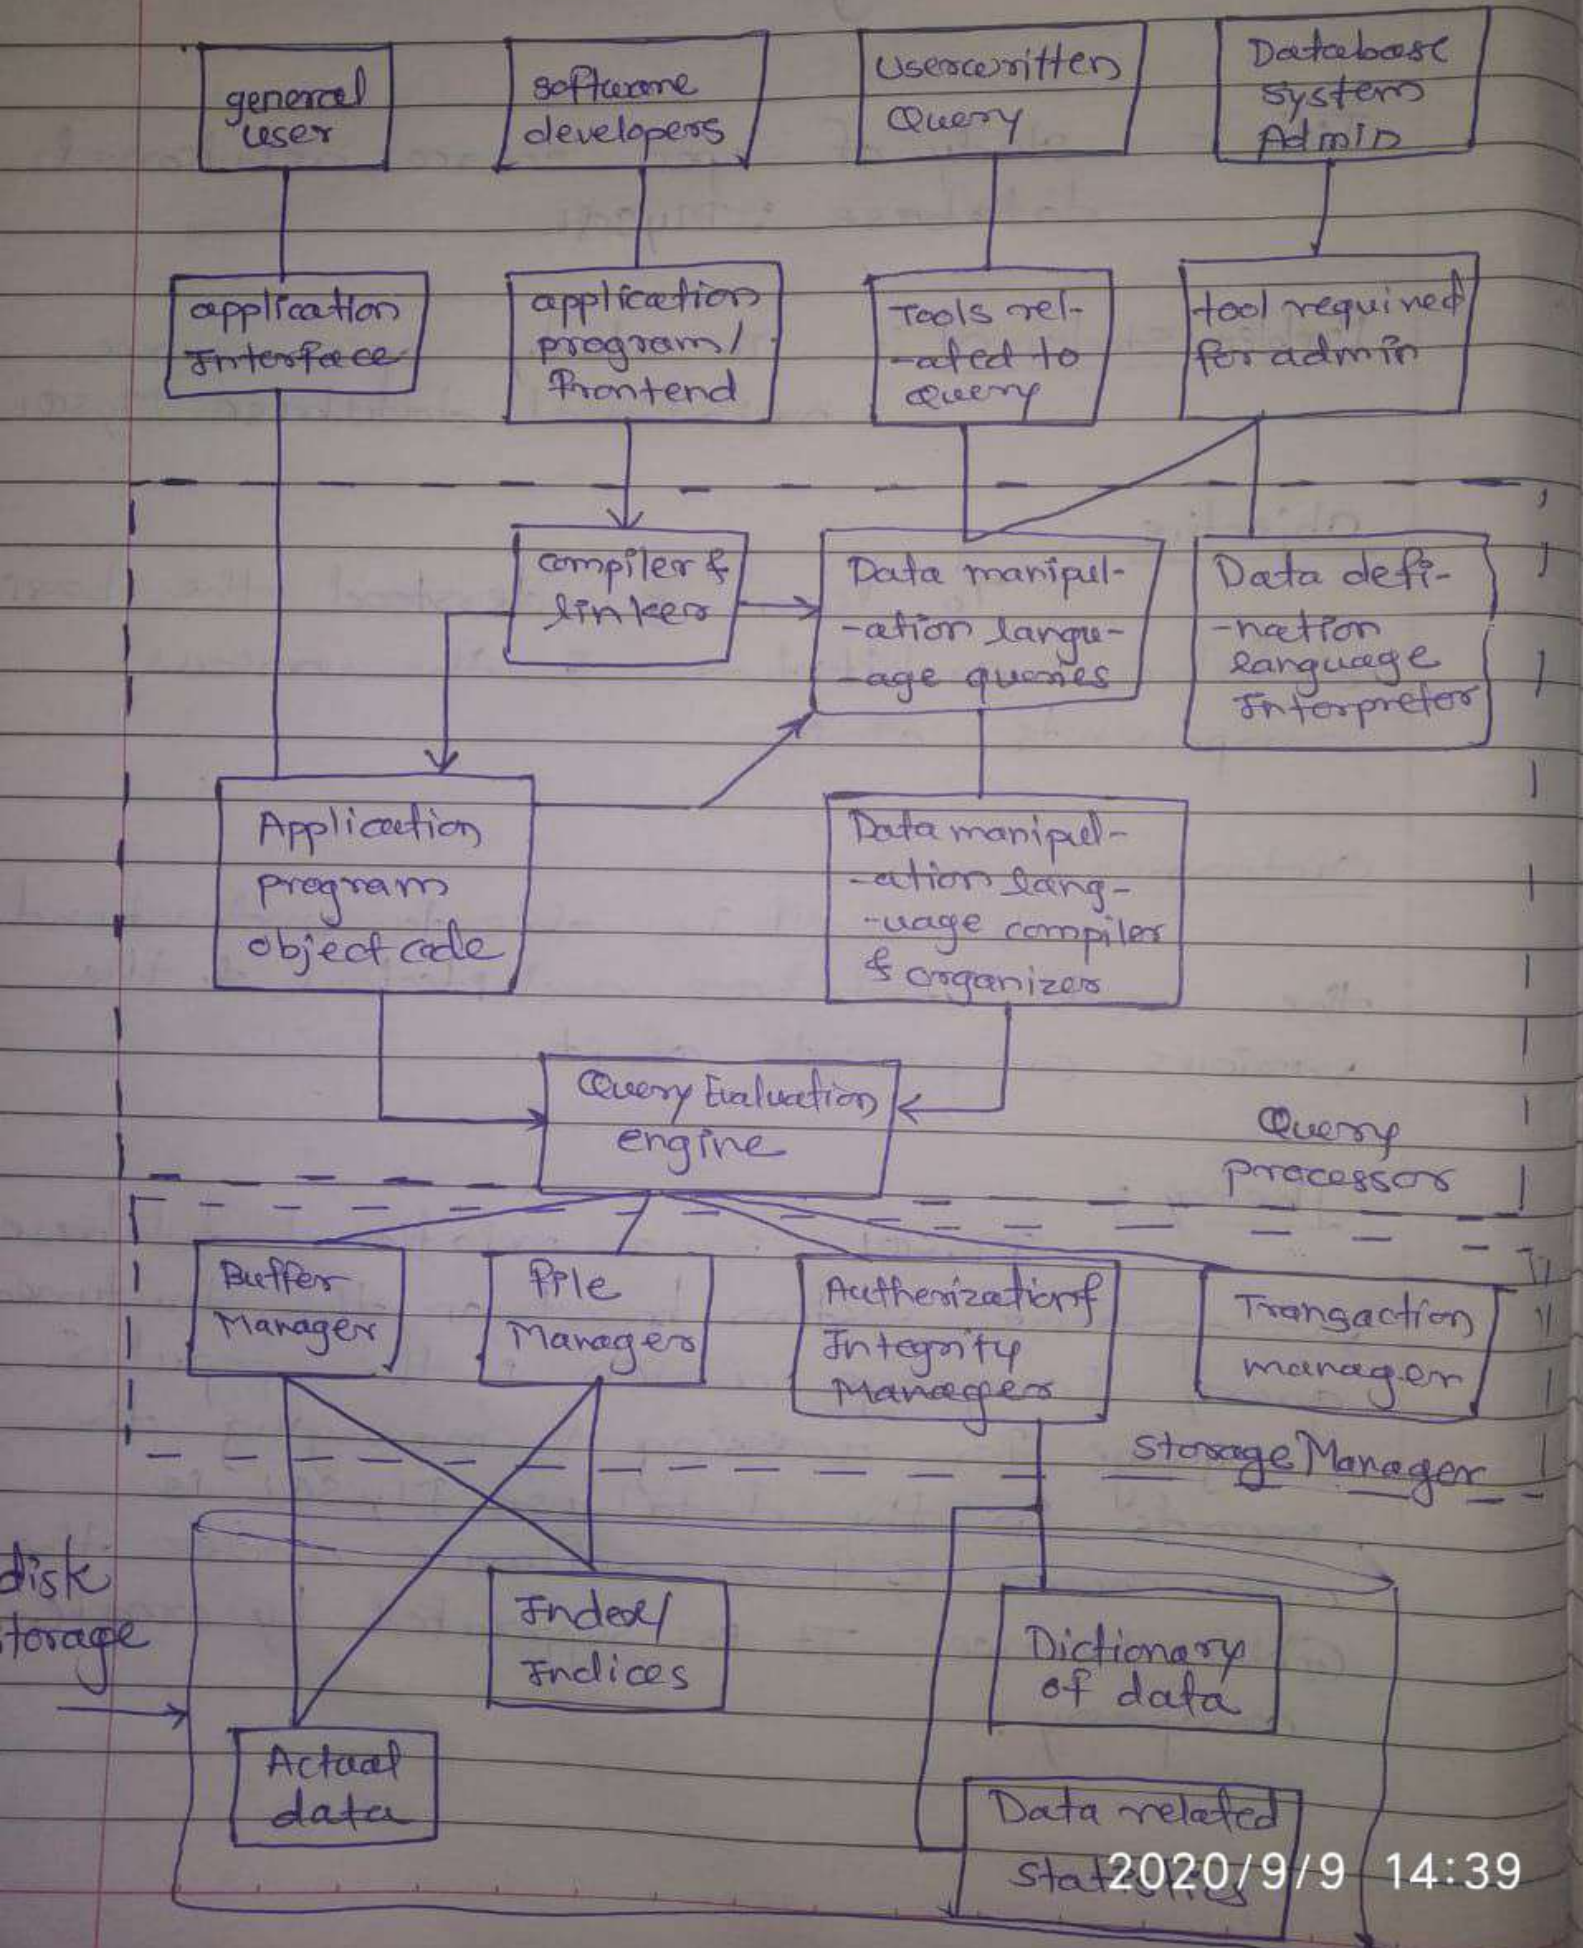 general
user
software
developers
Userwritten
Query
Database
system
Admin
application
Interface
application
program/
Frontend
Tools rel-
-ated to
Query
tool required
for admin
compiler &
linker
Data manipul-
-ation langu-
-age queries
Data defi-
-nation
language
Interpretor
Application
program
object code
Data manipul-
-ation lang-
-uage compiler
& organizer
Query Evaluation
engine
Query
processor
Buffer
Manager
File
Manager
Authorization &
Integrity
Manager
Transaction
manager
Storage Manager
disk
storage
Index/
Indices
Dictionary
of data
Actual
data
Data related
statistics
2020/9/9 14:39